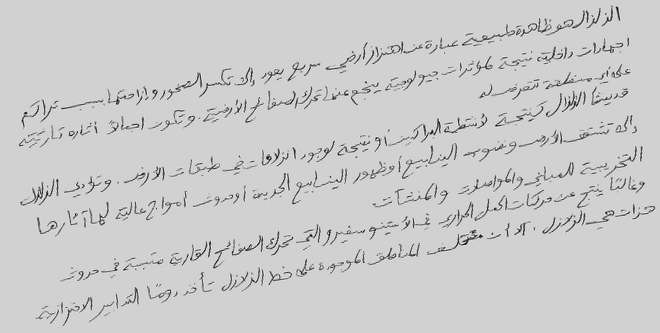 الزلزال هو ظاهرة طبيعية عبارة عن اهتزاز أرضي سريع يعود إلى تكسر الصخور وإزاحتها بسبب تراكم
اجهادات داخلية نتيجة لمؤثرات جيولوجية ينجم عنها تحرك الصفائح الأرضية. وتكون اجمالاً آثاره كارثية
على أي منطقة تتعرض له
قد ينشأ الزلزال كنتيجة لأنشطة البراكين أو نتيجة لوجود انزلاقات في طبقات الأرض. وتؤدي الزلازل
إلى تشقق الأرض ونضوب الينابيع أو ظهور الينابيع الجديدة أو حدوث أمواج عالية لها آثارها
التخريبية للمباني والمواصلات والمنشآت
وغالبًا ينتج عن حركات الحمل الحراري في الأستينوسفير والتي تحرك الصفائح القارية متسببة في حدوث
هزات هي الزلازل. الا أن المناطق الموجودة على خط الزلازل تأخذ دومًا التدابير الاحترازية